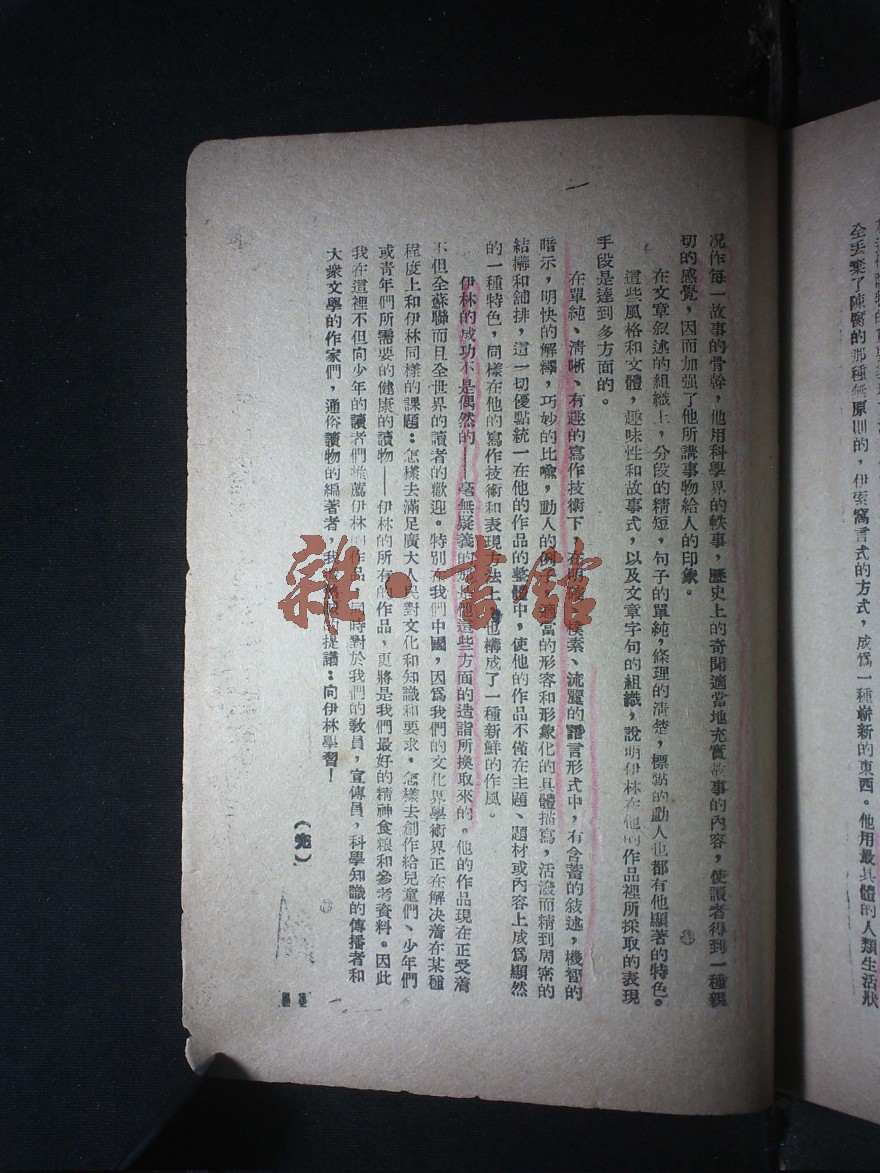 全丟棄了陳腐的那種無原則的，伊索寓言式的方式，成爲一種嶄新的東西。他用最具體的人類生活狀
况作每一故事的骨幹，他用科學界的軼事，歷史上的奇聞適當地充實故事的內容，使讀者得到一種親
切的感覺，因而加强了他所講事物給人的印象。
在文章叙述的組織上，分段的精短，句子的單純，條理的清楚，標點的動人也都有他顯著的特色。
這些風格和文體，趣味性和故事式，以及文章字句的組織，說明伊林在他的作品裡所採取的表現
手段是達到多方面的。
在單純、清晰、有趣的寫作技術下，在明 樸素、流暢的語言形式中，有含蓄的敍述，機智的
暗示，明快的解釋，巧妙的比喩，動人的例子，適當的形容和形象化的具體描寫，活潑而精到周密的
結構和舖排，這一切優點統一在他的作品的整體中，使他的作品不僅在主題、題材或內容上成爲顯然
的一種特色，同樣在他的寫作技術和表現方法上，也構成了一種新鮮的作風。
伊林的成功不是偶然的——毫無疑義的那是他這些方面的造詣所換取來的。他的作品現在正受着
不但全蘇聯而且全世界的讀者的歡迎。特別在我們中國，因爲我們的文化界學術界正在解决着在某種
程度上和伊林同樣的課題：怎樣去滿足廣大人民對文化和知識和要求，怎樣去創作給兒童們、少年們
或青年們所需要的健康的讀物——伊林的所有的作品，更將是我們最好的精神食粮和參考資料。因此
我在這裡不但向少年的讀者們推薦伊林的作品，同時對於我們的敎員，宣傳員，科學知識的傳播者和
大衆文學的作家們，通俗讀物的編著者，我 的提議：向伊林學習！
（完）
雜·書館